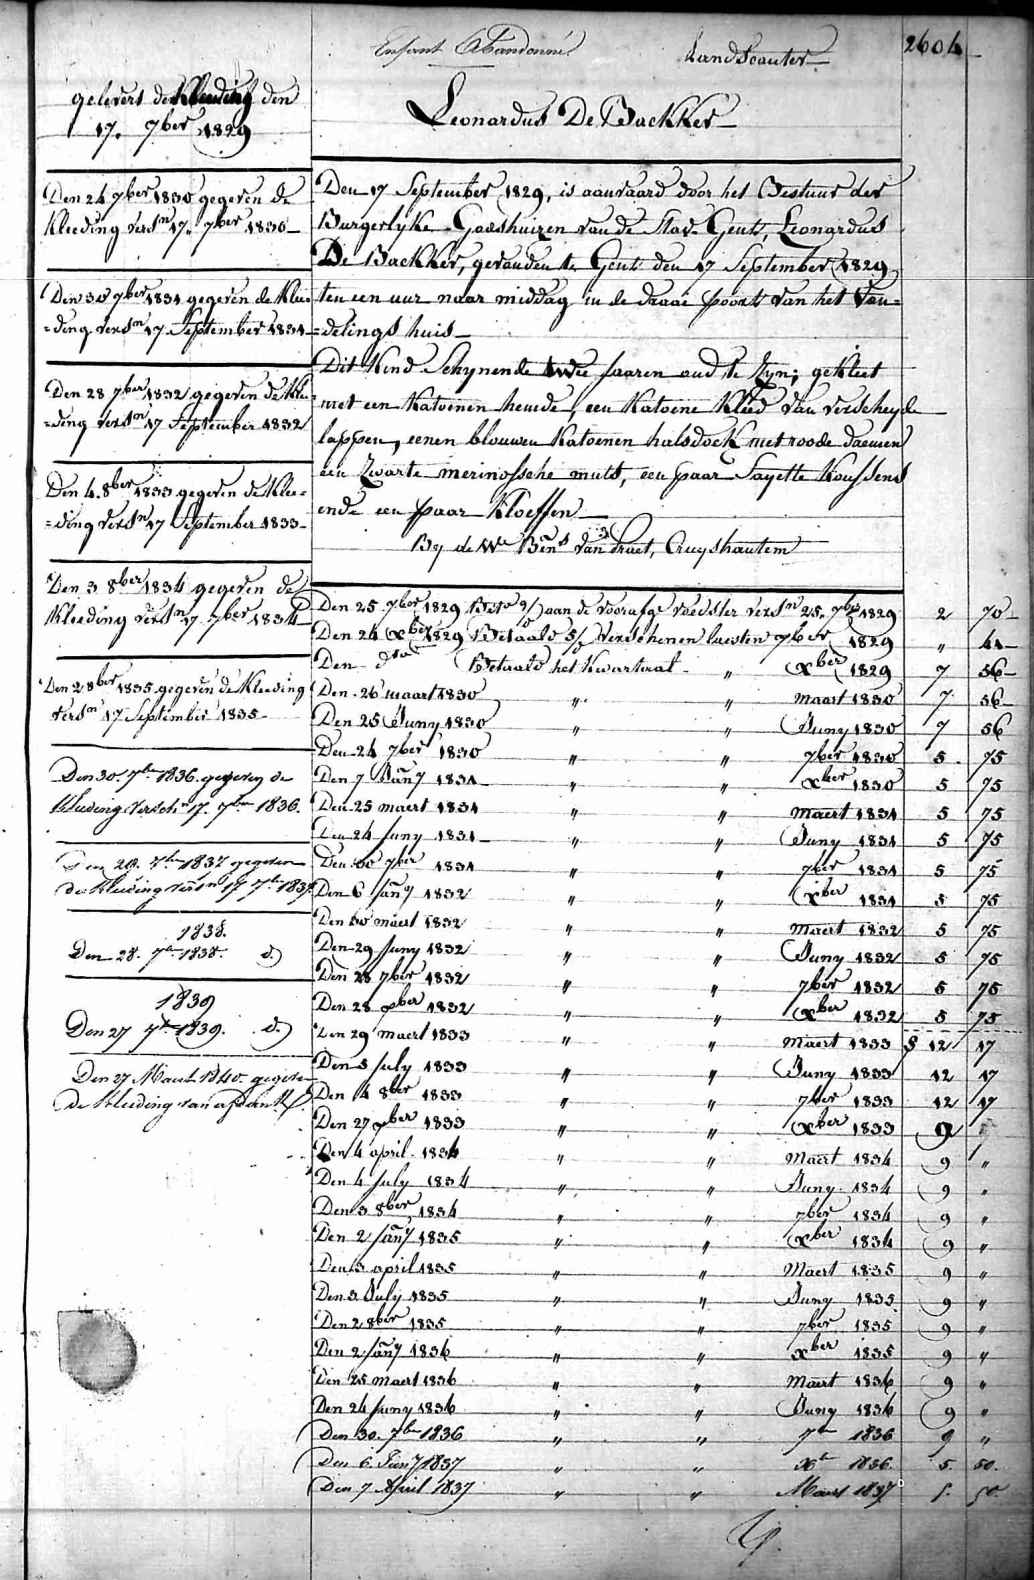 Enfant Abandonné Landscauter 2604
gelevert de Kleeding den
17. 7ber 1829
Leonardus De Backker
Den 24 7ber 1830 gegeven de
Kleeding versn 17. 7ber 1830
Den 30 7ber 1831 gegeven de Klee=
=ding versn 17 September 1831
Den 28 7ber 1832 gegeven de Klee=
=ding versn 17 September 1832
Den 4. 8ber 1833 gegeven de Klee=
=ding versn 17 September 1833
Den 3 8ber 1834 gegeven de
Kleeding versn 17 7ber 1834
Den 2 8ber 1835 gegeven de Kleeding
versn 17 September 1835
Den 30. 7ber 1836 gegeven de
Kleeding versch. 17. 7ber 1836.
Den 28. 7ber 1837 gegeven
de Kleeding versn 17 7ber 1837
1838.
Den 28. 7br 1838. d.)
1839
Den 27 7br 1839. d.)
Den 27 Maert 1840. gegeven
de Kleeding van
Den 17 September 1829, is aanvaard door het Bestuur der
Burgerlyke Godshuizen van de Stad Gent, Leonardus
De Backker, gevonden te Gent den 17 September 1829
ten een uur naar middag in de draai poort van het Von=
=delings huis
Dit Kind Schynende twee jaaren oud te Zyn, gekleet
met een Katoenen hemde, een Katoene Kleed van verscheyde
lappen, eenen blouwen Katoenen halsdoek met roode
een Zwarte merinossche muts, een paar Sayette Koussens
ende een paar Kloeffen
By de We Bens van Pruet, Cruyshautem
Den 25 7ber 1829 aan de voorafge voedster versn 25. 7ber 1829 2 70
Den 24 Xber 1829 Betaald 5/ Verschenen 7ber 1829 " 44
Den dto Betaald het Kwartaal " Xber 1829 7 56
Den 26 maart 1830 " " maart 1830 7 56
Den 25 Juny 1830 " " Juny 1830 7 56
Den 24 7ber 1830 " " 7ber 1830 5 75
Den 7 Jany 1831 " " Xber 1830 5 75
Den 25 maert 1831 " " maert 1831 5 75
Den 24 Juny 1831 " " Juny 1831 5 75
Den 30 7ber 1831 " " 7ber 1831 5 75
Den 6 Jany 1832 " " Xber 1831 5 75
Den 30 maert 1832 " " maert 1832 5 75
Den 29 Juny 1832 " " Juny 1832 5 75
Den 28 7ber 1832 " " 7ber 1832 5 75
Den 28 xber 1832 " " Xber 1832 5 75
Den 29 maert 1833 " " Maert 1833 § 12 17
Den 5 July 1833 " " Juny 1833 12 17
Den 4 8ber 1833 " " 7ber 1833 12 17
Den 27 xber 1833 " " Xber 1833 9
Den 4 april 1834 " " Maert 1834 9 "
Den 4 July 1834 " " Juny 1834 9 "
Den 3 8ber 1834 " " 7ber 1834 9 "
Den 2 Jany 1835 " " Xber 1834 9 "
Den 3 april 1835 " " Maert 1835 9 "
Den 3 July 1835 " " Juny 1835 9 "
Den 2 8ber 1835 " " 7ber 1835 9 "
Den 2 Jany 1836 " " Xber 1835 9 "
Den 25 maert 1836 " " Maert 1836 9 "
Den 24 Juny 1836 " " Juny 1836 9 "
Den 30. 7br 1836 " " 7br 1836 9 "
Den 6 Jany 1837 " " Xbr 1836 5. 50.
Den 7 April 1837 " " Maert 1837 5. 50.